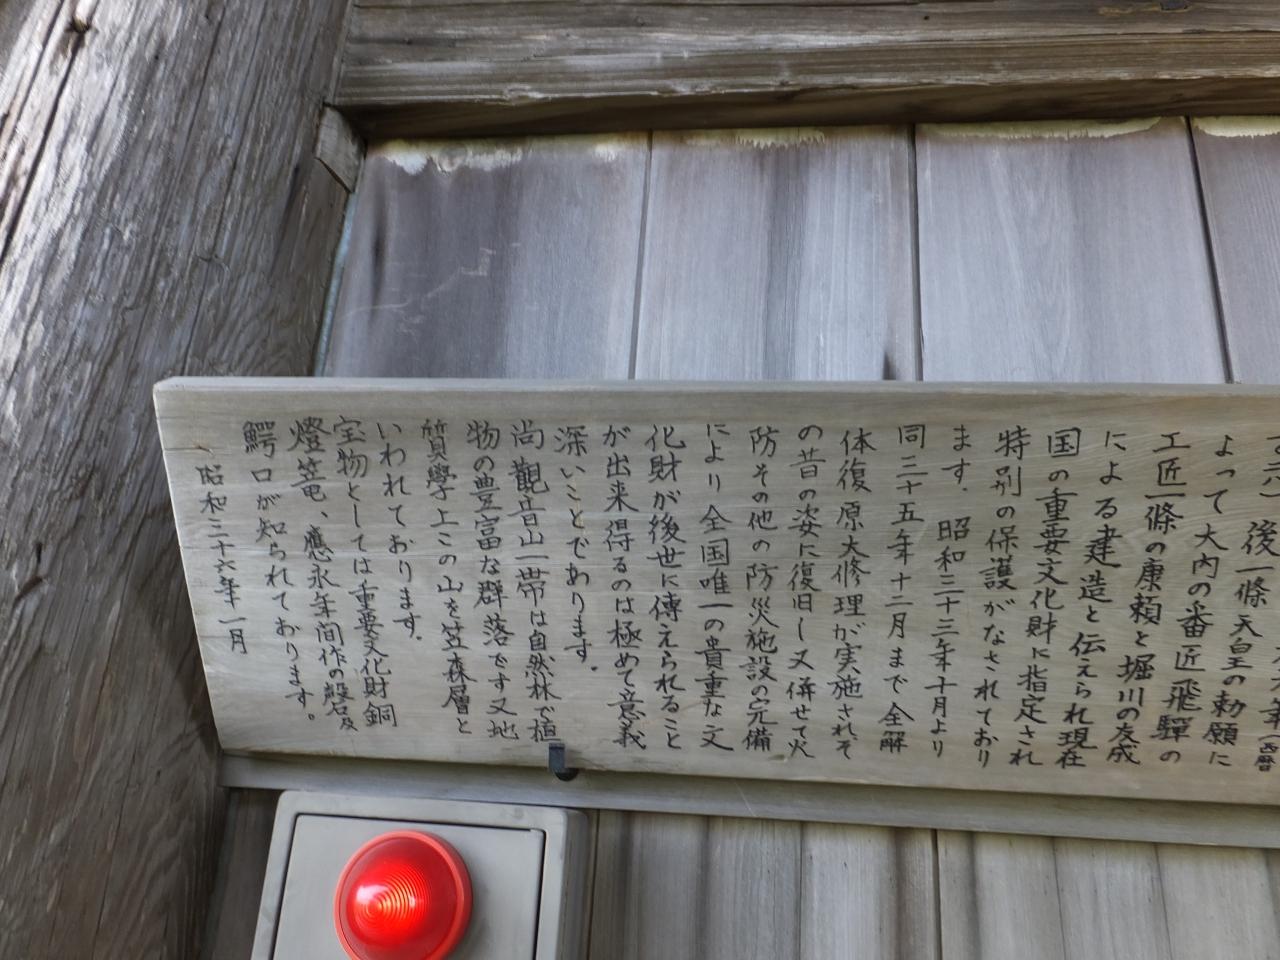 後一條天皇の勅願に
よって大内の番匠飛驒の
工匠一條の康頼と堀川の友成
による建造と伝えられ現在
国の重要文化財に指定され
特別の保護がなされており
ます。昭和三十三年十月より
同三十五年十二月まで全解
体復原大修理が実施されそ
の昔の姿に復旧し又併せて火
防その他の防災施設の完備
により全国唯一の貴重な文
化財が後世に傳えられること
が出来得るのは極めて意義
深いことであります。
尚觀音山一帯は自然林で植
物の豊富な群落です又地
質學上この山を笠森層と
いわれております。
宝物としては重要文化財銅
燈篭、應永年間作の磬及
鰐口が知られております。
昭和三十六年一月